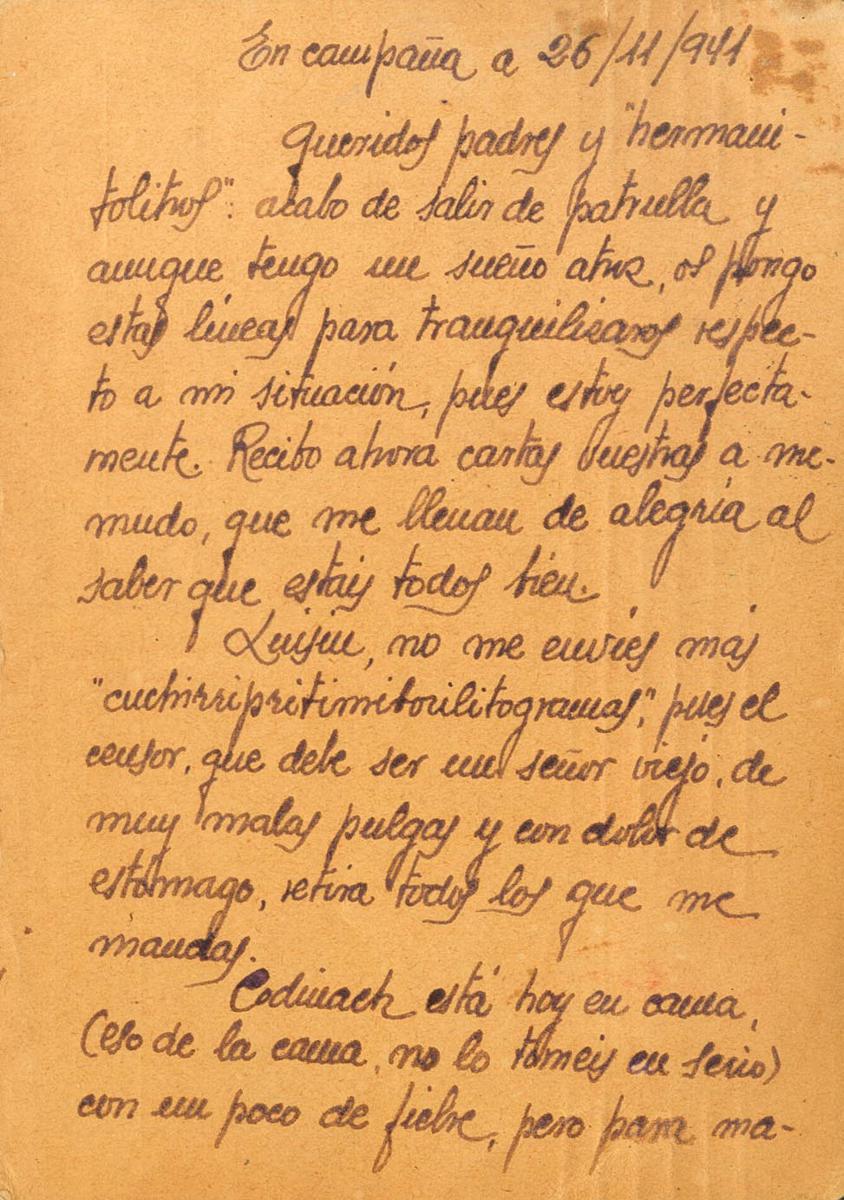 En campaña a 26/11/941
Queridos padres y "hermani-
tolitros": acabo de salir de patrulla y
aunque tengo un sueño atroz, os pongo
estas líneas para tranquilizaros respec-
to a mi situación, pues estoy perfecta-
mente. Recibo ahora cartas vuestras a me-
mudo, que me llenan de alegría al
saber que estais todos bien.
Luisin, no me envíes más
"cuchirripritimiborilitogramas", pues el
censor, que debe ser un señor viejo, de
muy malas pulgas y con dolor de
estómago, retira todos los que me
mandas.
Codinach está hoy en cama,
(eso de la cama, no lo tomeis en serio)
con un poco de fiebre, pero para ma-